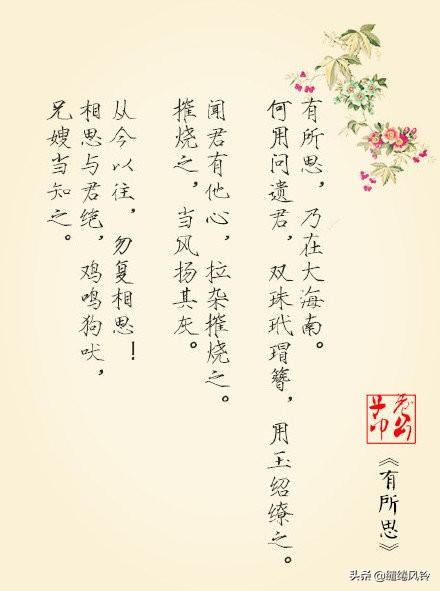 《有所思》
有所思，乃在大海南。
何用问遗君，双珠玳瑁簪，用玉绍缭之。
闻君有他心，拉杂摧烧之。
摧烧之，当风扬其灰。
从今以往，勿复相思！
相思与君绝，鸡鸣狗吠，
兄嫂当知之。
头条 @缱绻风铃